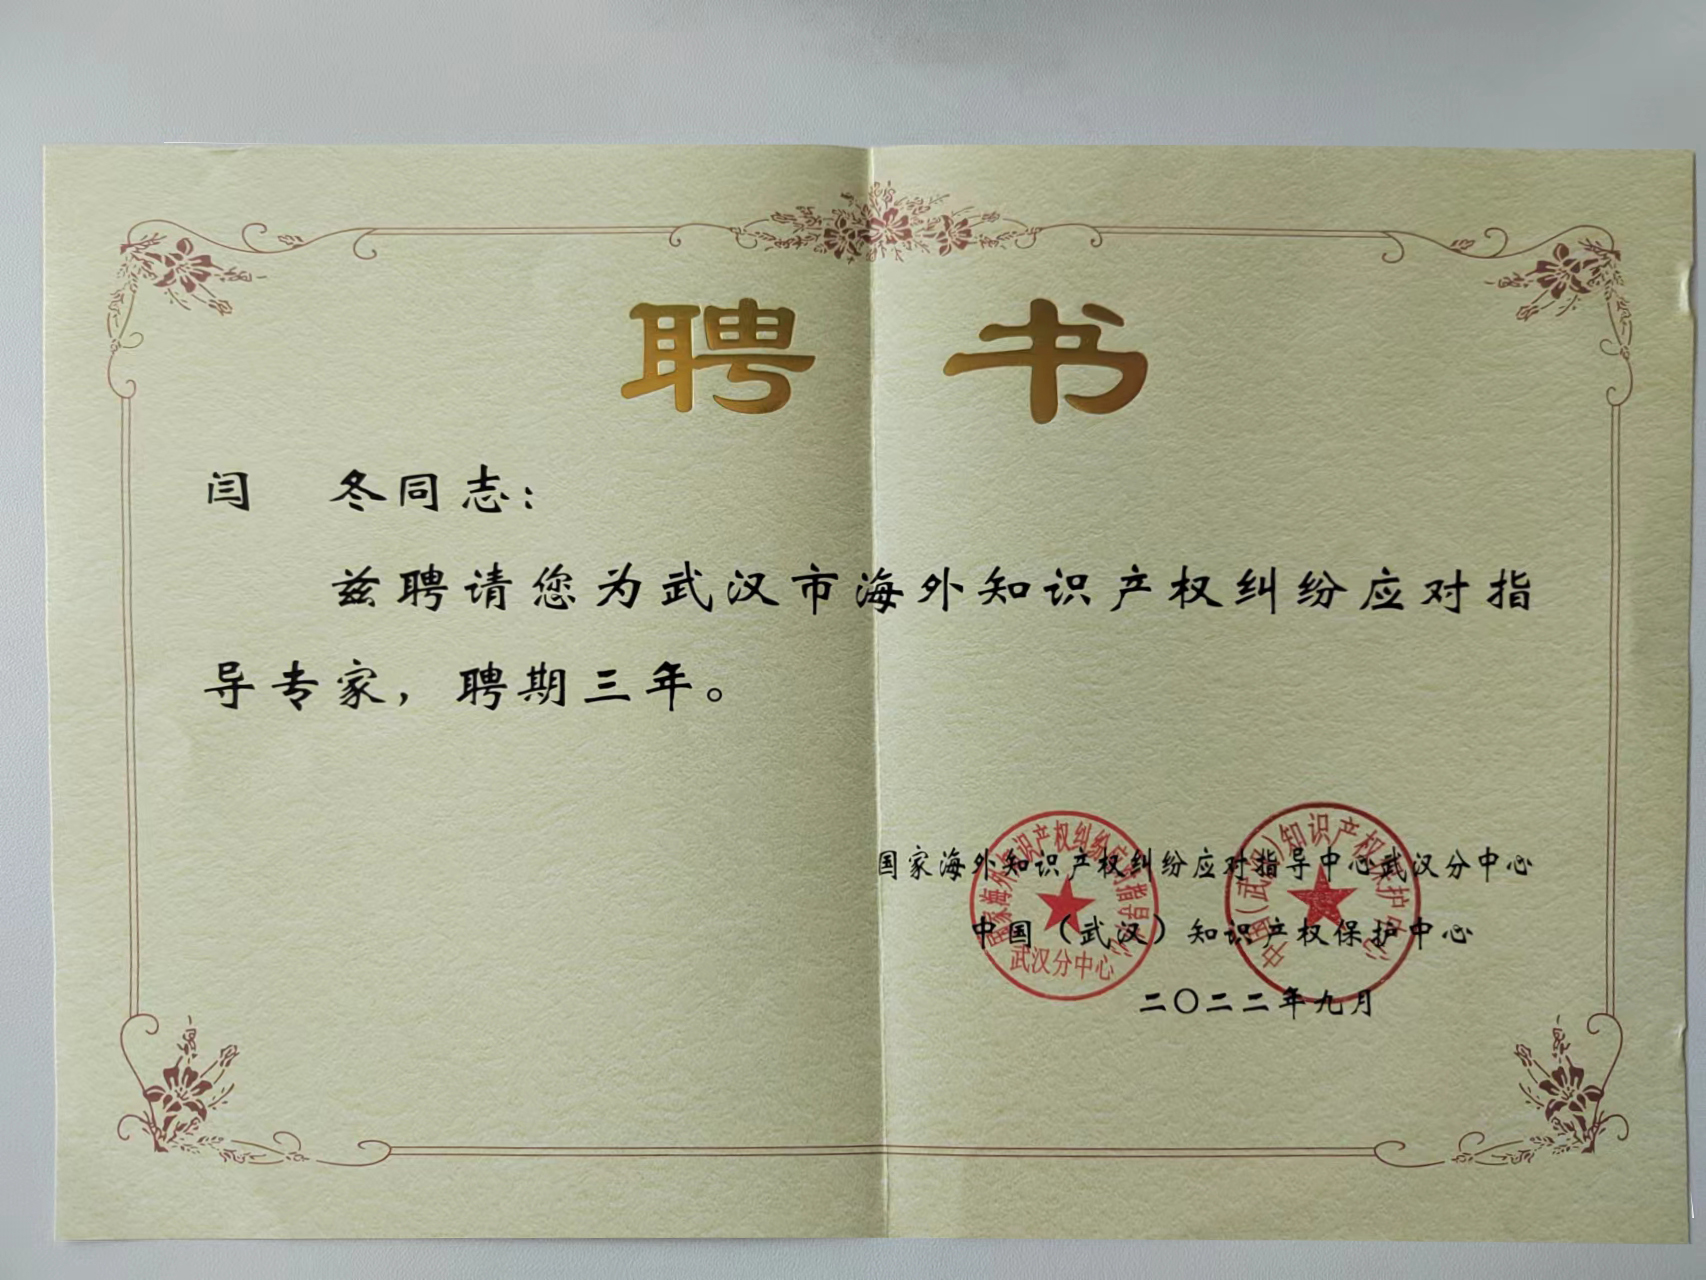 聘 书
闫 冬同志：
兹聘请您为武汉市海外知识产权纠纷应对指
导专家，聘期三年。
国家海外知识产权纠纷应对指导中心武汉分中心
中国（武汉）知识产权保护中心
二〇二二年九月
国家海外知识产权纠纷应对指导中心
武汉分中心
中国(武汉)知识产权保护中心